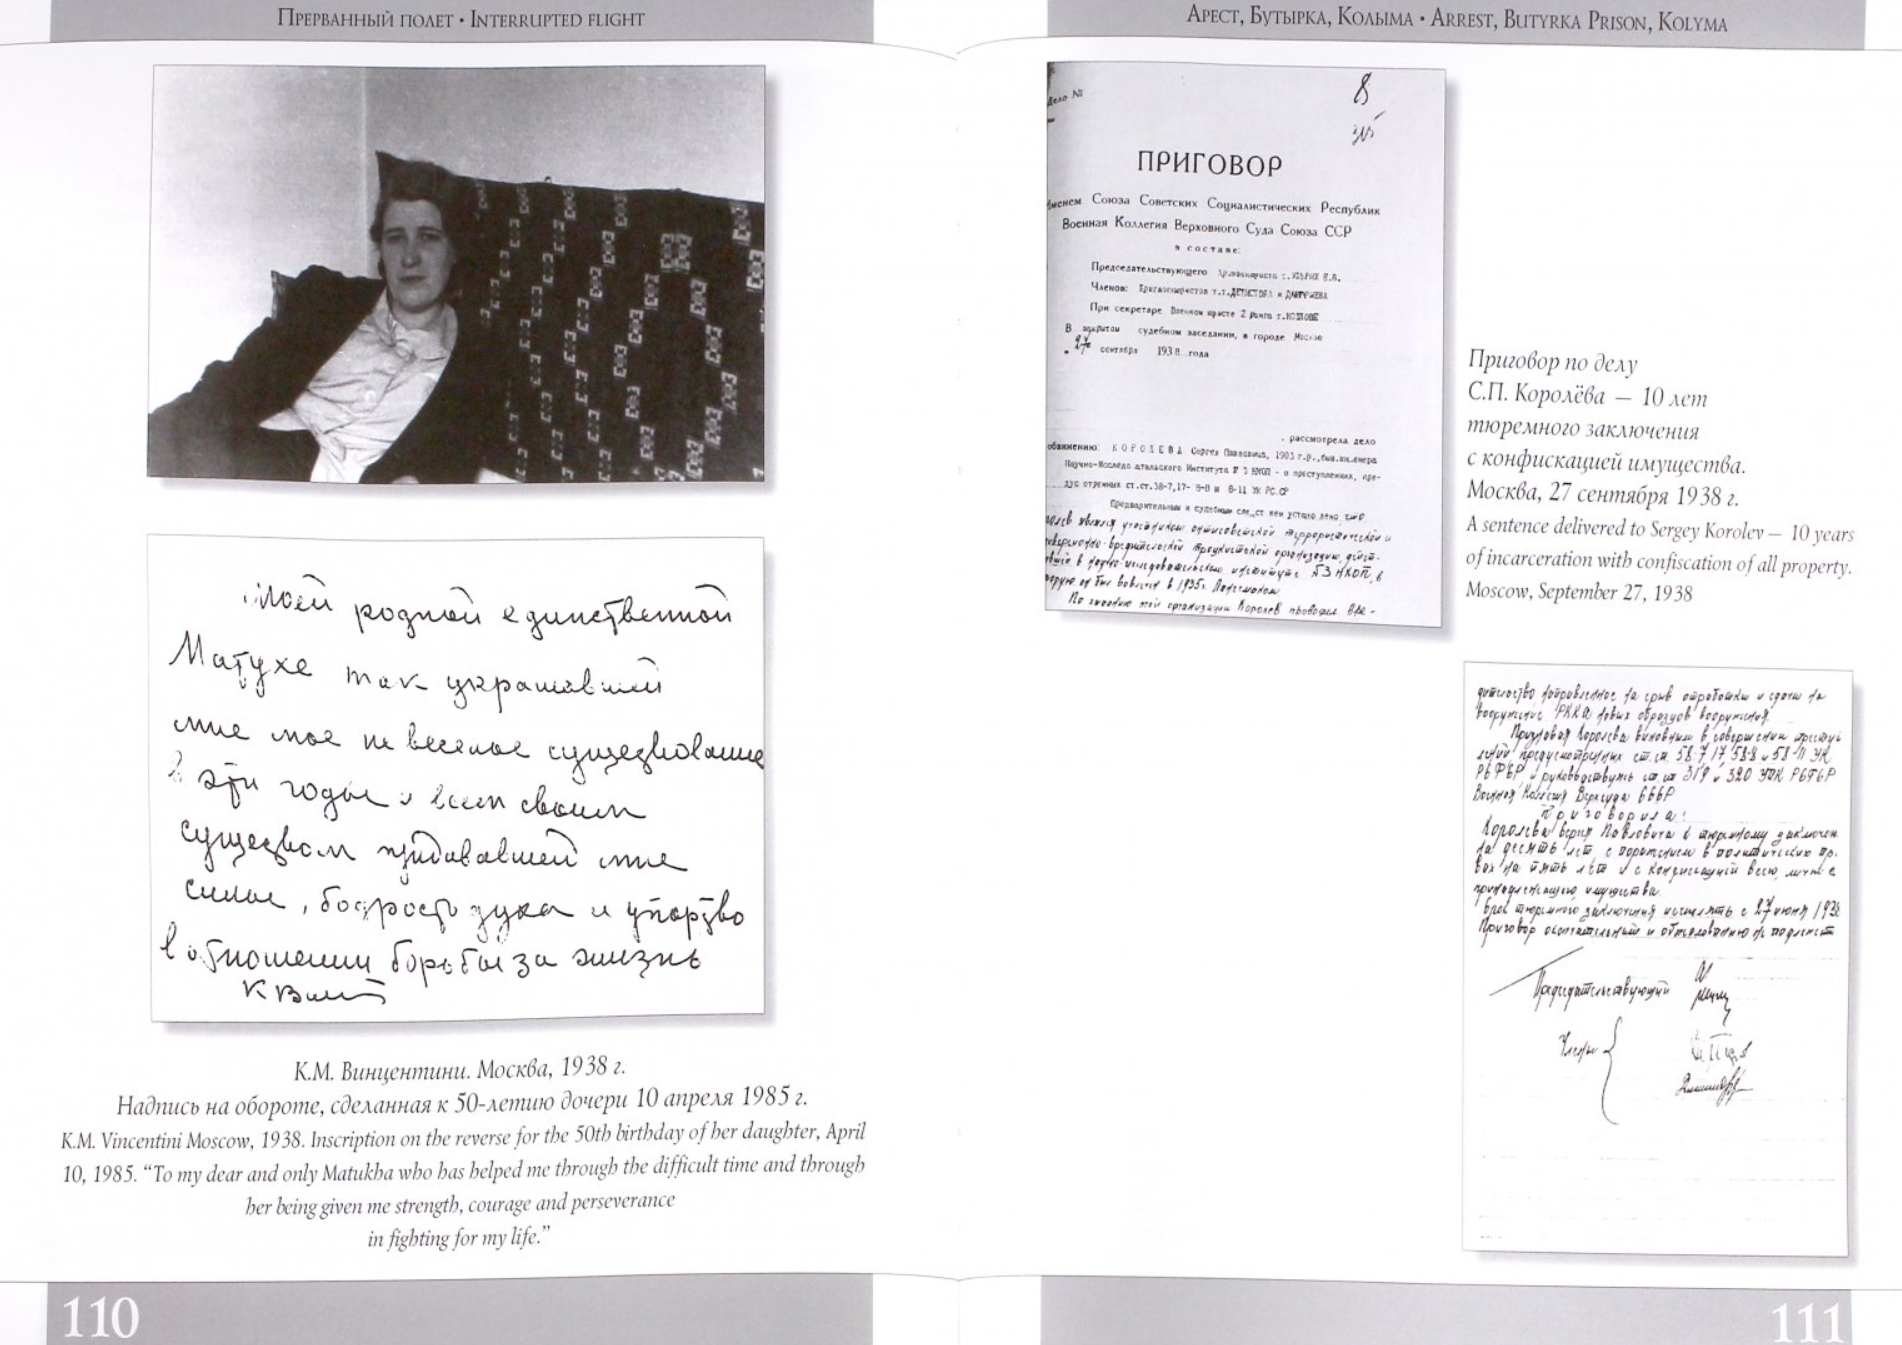 Прерванный полет • Interrupted flight
Моей родной единственной
Матухе так украшавшей
мне мое не веселое существование
в эти годы и всем своим
существом придававшей мне
силы, бодрость духа и упорство
в отношении борьбы за жизнь
К Винт
К.М. Винцентини. Москва, 1938 г.
Надпись на обороте, сделанная к 50-летию дочери 10 апреля 1985 г.
K.M. Vincentini Moscow, 1938. Inscription on the reverse for the 50th birthday of her daughter, April
10, 1985. “To my dear and only Matukha who has helped me through the difficult time and through
her being given me strength, courage and perseverance
in fighting for my life.”
110
Арест, Бутырка, Колыма • Arrest, Butyrka Prison, Kolyma
Дело №
8
ПРИГОВОР
Именем Союза Советских Социалистических Республик
Военная Коллегия Верховного Суда Союза ССР
в составе:
Председательствующего
Членов: Бригвоенюристов т.т.
При секретаре Военном юристе 2 ранга т. КОЗЛОВЕ
В закрытом судебном заседании, в городе Москве
27 сентября 1938 года
рассмотрела дело
обвинению: КОРОЛЕВА Сергея Павловича, г.р., быв.инженера
Научно-Исследовательского Института № 3 НКОП - в преступлениях, пре-
ст.ст.58-7,17-
Предварительным и судебным следствием установлено что
участником антисоветской террористической и
троцкистской организации,
в научно-исследовательском институте №3 НКОП, в
он был вовлечен в 1935г.
По заданию этой организации Королев проводил вре-
Приговор по делу
С.П. Королёва — 10 лет
тюремного заключения
с конфискацией имущества.
Москва, 27 сентября 1938 г.
A sentence delivered to Sergey Korolev — 10 years
of incarceration with confiscation of all property.
Moscow, September 27, 1938
дительство, направленное на срыв отработки и сдачи на
вооружение РККА новых образцов вооружения.
Признавая Королева виновным в совершении преступ
лений предусмотренных ст.ст. 58-7, 17, 58-8 и 58-11 УК
РСФСР и руководствуясь ст.ст 319 и 320 УПК РСФСР
Военная Коллегия Верхсуда СССР
Приговорила:
Королева Сергея Павловича к тюремному заключен
на десять лет с поражением в политических пр.
вах на пять лет и с конфискацией всего, лично
принадлежащего, имущества.
Срок тюремного заключения исчислять с 27 июня 1938
Приговор окончательный и обжалованию не подлежит
Председательствующий
Члены
111